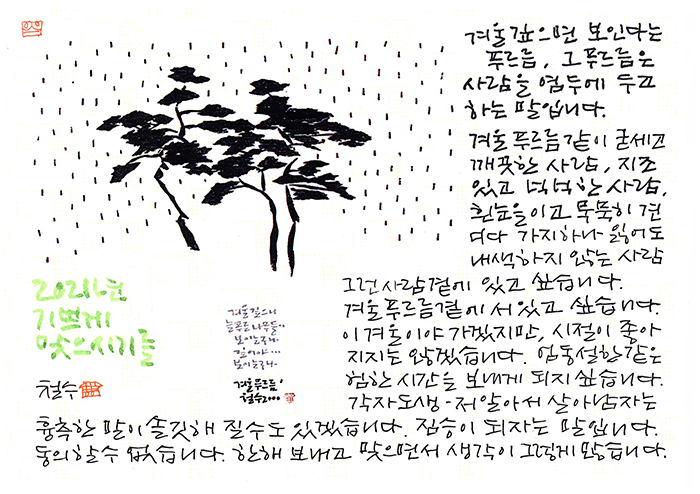 겨울 깊으면 보인다는
푸르름, 그 푸르름은
사람을 염두에 두고
하는 말입니다.
겨울 푸르름같이 굳세고
깨끗한 사람, 지조
있고 넉넉한 사람,
흰눈을 이고 묵묵히 견
디다 가지하나 잃어도
내색하지 않는 사람
그런 사람 곁에 있고 싶습니다.
겨울 푸르름 곁에 서 있고 싶습니다.
이 겨울이야 가겠지만, 시절이 좋아
지지는 않겠습니다. 엄동설한 같은
험한 시간을 보내게 되지 싶습니다.
각자도생 - 저 알아서 살아남자는
흉측한 말이 솔깃해 질 수도 있겠습니다. 짐승이 되자는 말입니다.
동의할 수 없습니다. 한해 보내고 맞으면서 생각이 그렇게 많습니다.
2021년
기쁘게
맞으시기를
철수
겨울 깊으니
늘푸른 나무들이
보이는구나.
깊어야...
보이는구나.
'겨울 푸르름'
철수2000